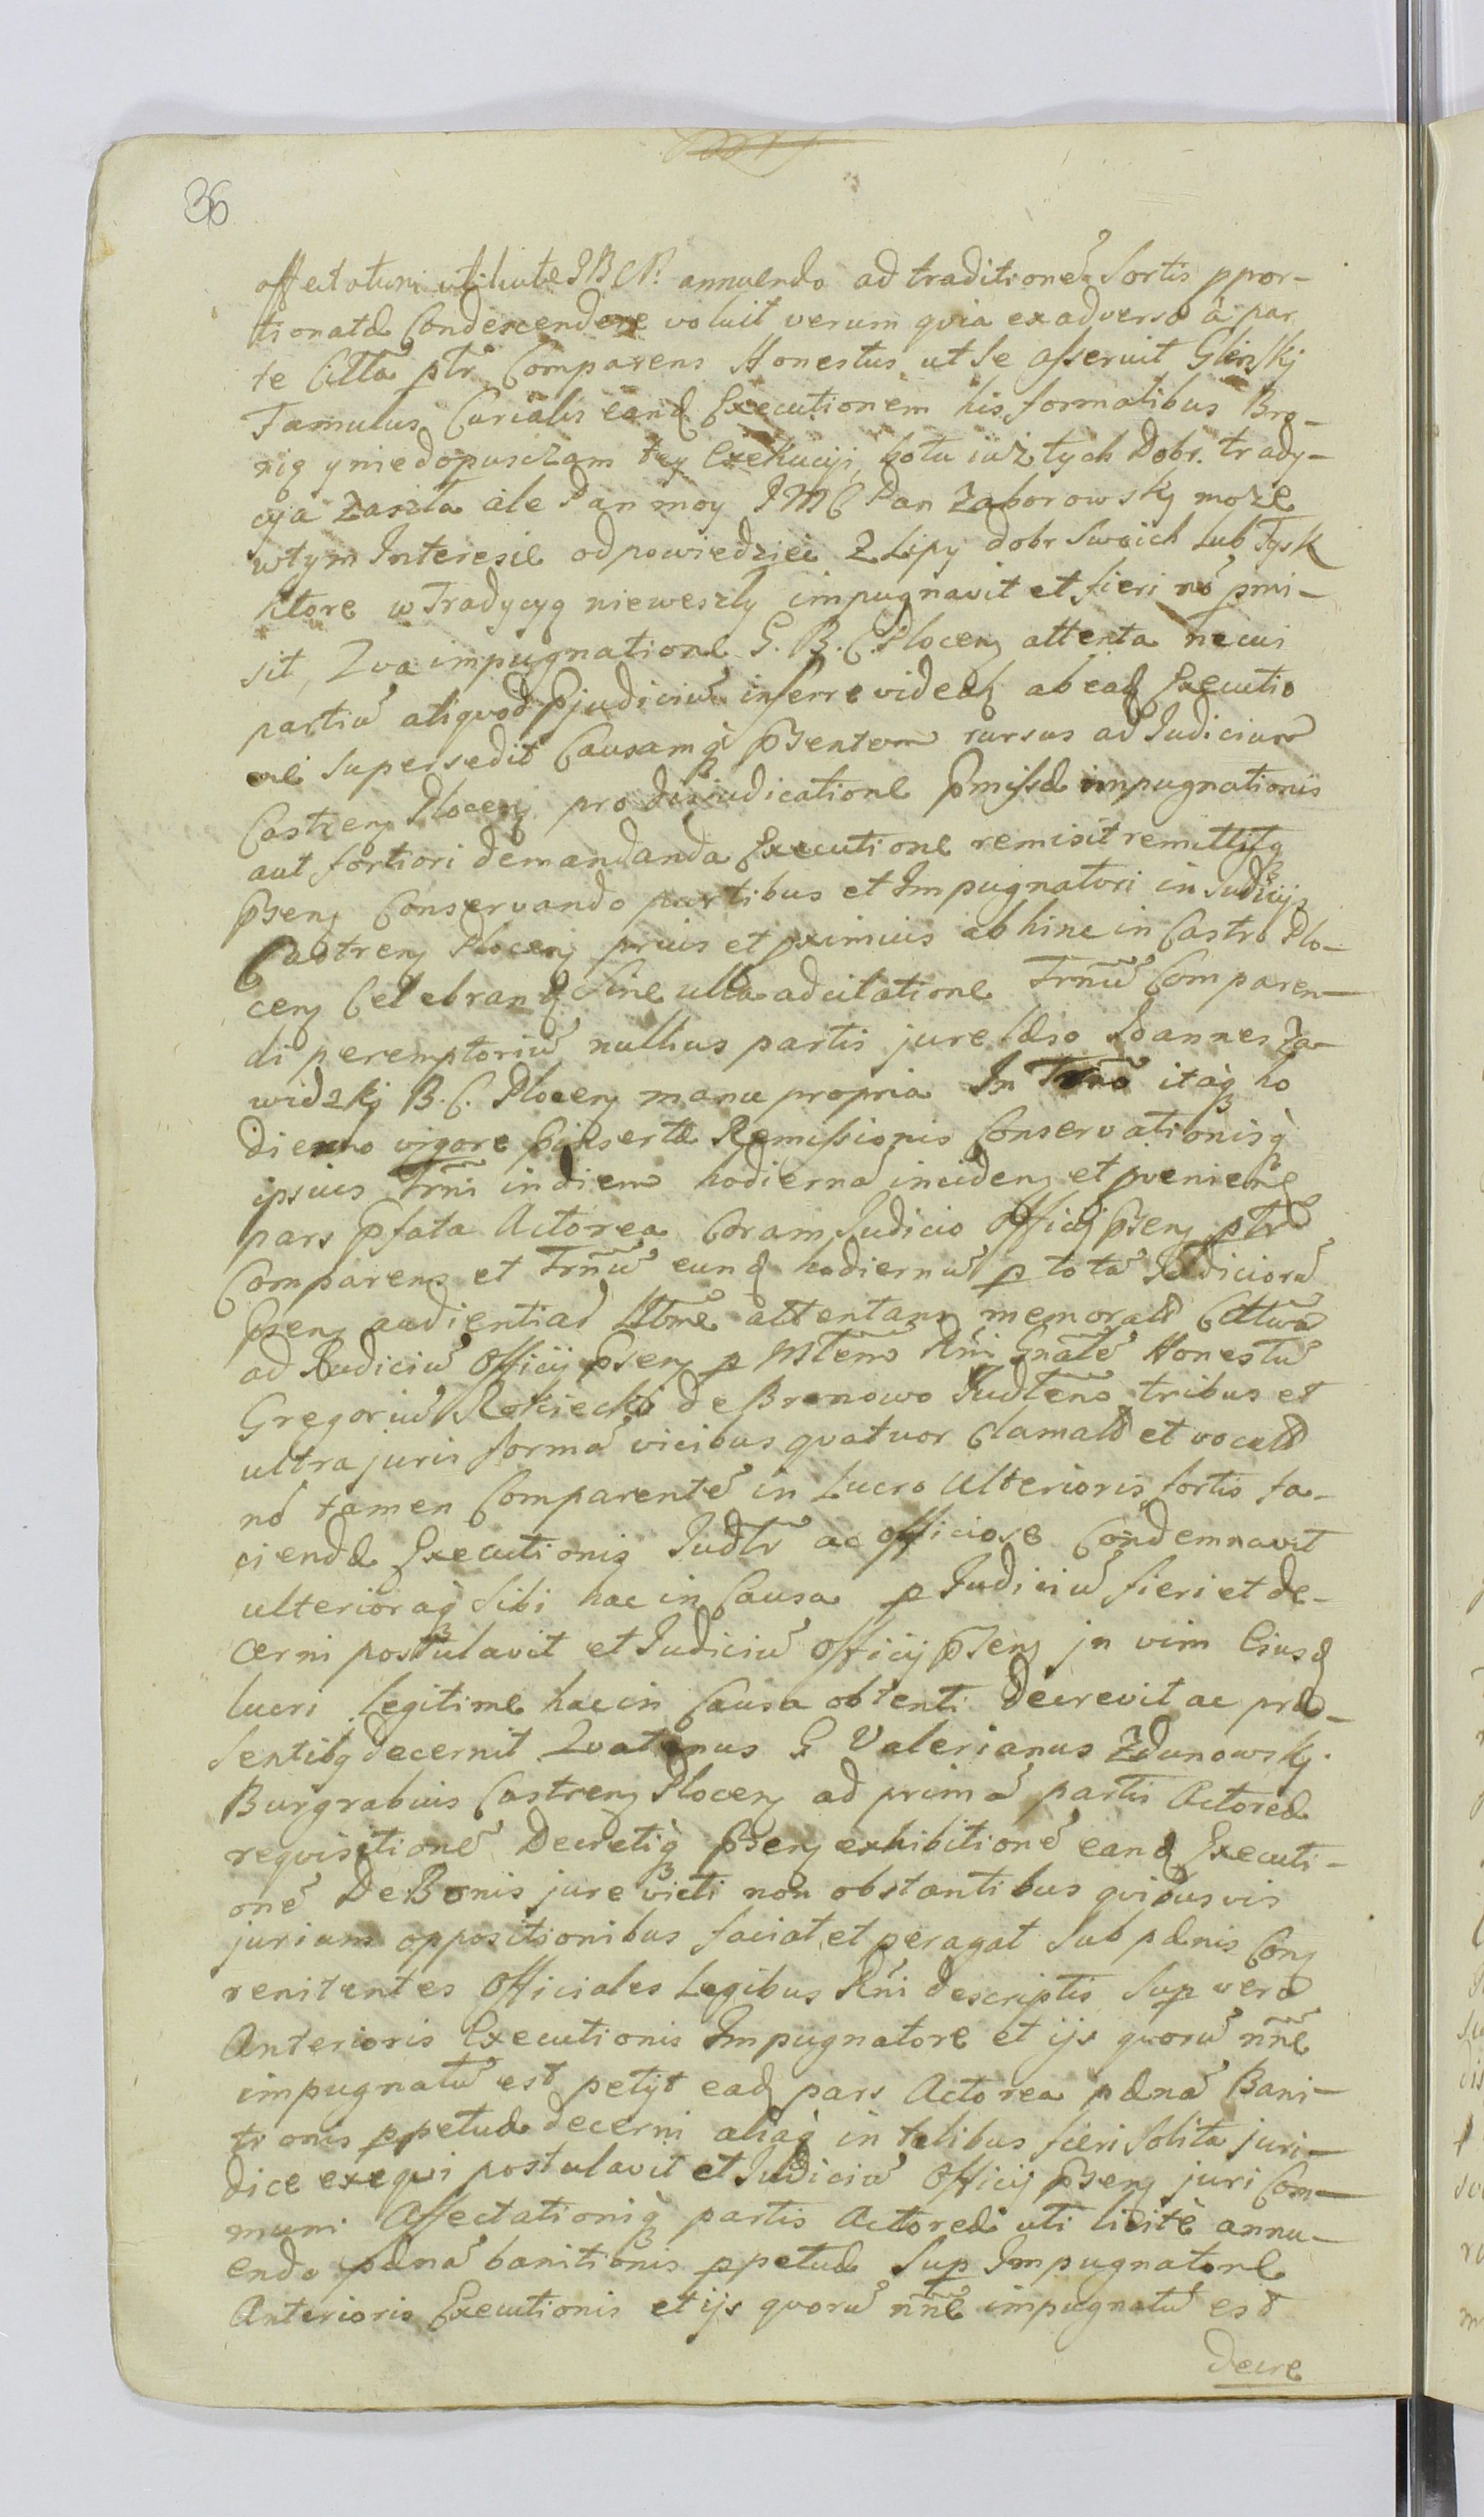 36
affectationi utilitate IBCP. annuendo ad traditionē sortis ppor-
tionatæ Condescendere voluit verum qvia ex adverso à par
te Citta ptr Comparens Honestus ut se asseruit Glinskj
Famulus Curialis eandꝫ Executionem his formalibus Bro-
nię y niedopuszczam tey Exekucyi, bo tu iuż tych Dobr. trady-
cya zaszła ale Pan moy JMC Pan Zaborowskj może
wtym Interesie odpowiedziec z Lipy dobr swoich lub Tysk
ktore w Tradycyą nieweszły impugnavit et fieri nō pmi-
sit, Qva impugnatione G. B. C. Plocenꝫ attenta ne cui
partiū aliqvod Pjudiciū inferre videatꝫ ab eadꝫ Executio
ne supersedit Causamqꝫ Psentem rursus ad Judicium
Castrenꝫ Plocenꝫ pro disiudicatione Pmissæ impugnationis
aut fortiori demandanda Executione remisit remittitqꝫ
Psenꝫ Conservando partibus et Impugnatori in Judicijs
Castrenꝫ Plocenꝫ prius et pximius ab hinc in Castro Plo-
cenꝫ Celebrandꝫ Sine ulla adcitatione Trñū Comparen-
di peremptoriū nullius partis jure læso Joannes Za-
widzkj B. C. Plocenꝫ manu propria In Trñō itaqꝫ ho
dierno vigore Pinsertæ Remissionis Conservationisqꝫ
ipsius Trñi in diem hodiernā incidenꝫ et pveniēn
pars Pfata Actorea Coram Judicio Officij Psenꝫ ptr
Comparens et Trñū eundꝫ hodiernū p totā Judiciorū
Psenꝫ audientiā Ltme attentans memoratū Cittum
ad Judiciū Officij Psenꝫ p Mtem Rñi Gnālē Honestū
Gregoriū Rokicckj de Bronowo Judtenō tribus et
ultra juris formā vicibus qvatuor Clamatū et vocatū
nō tamen Comparentē in Lucro Ulterioris fortis fa-
ciendæ Executionis Judtr ac officiose Condemnavit
ulterioraqꝫ sibi hac in Causa p Judiciū fieri et de-
cerni postulavit et Judiciū Officij Psenꝫ in vim Eiusdꝫ
lucri Legitime hac in Causa obtenti Decrevit ac præ-
sentibꝫ decernit Qvatenus G Valerianus Zdunowskj
Burgrabius Castrenꝫ Plocenꝫ ad primā partis Actoreæ
reqvisitionē Decretiqꝫ Psenꝫ exhibitionē eandꝫ Executi-
onē De Bonis jure victi non obstantibus qvibusvis
jurium oppositionibus faciat et peragat sub pænis Conꝫ
renitentes Officiales Legibus Rñi descriptis Sup vero
Anterioris Executionis Impugnatore et ijs qvorū nñe
impugnatū est petijt eadꝫ pars Actorea pænā Bani-
tionis ppetuæ decerni aliaqꝫ in talibus fieri solita juri-
dice exeqvi postulavit et Judiciū Officij Psenꝫ juri Com-
muni Affectationiqꝫ partis Actoreæ uti licitè annu-
endo pænā banitionis ppetuæ Sup Impugnatore
Anterioris Executionis et ijs qvorū nñe impugnatū est
decre